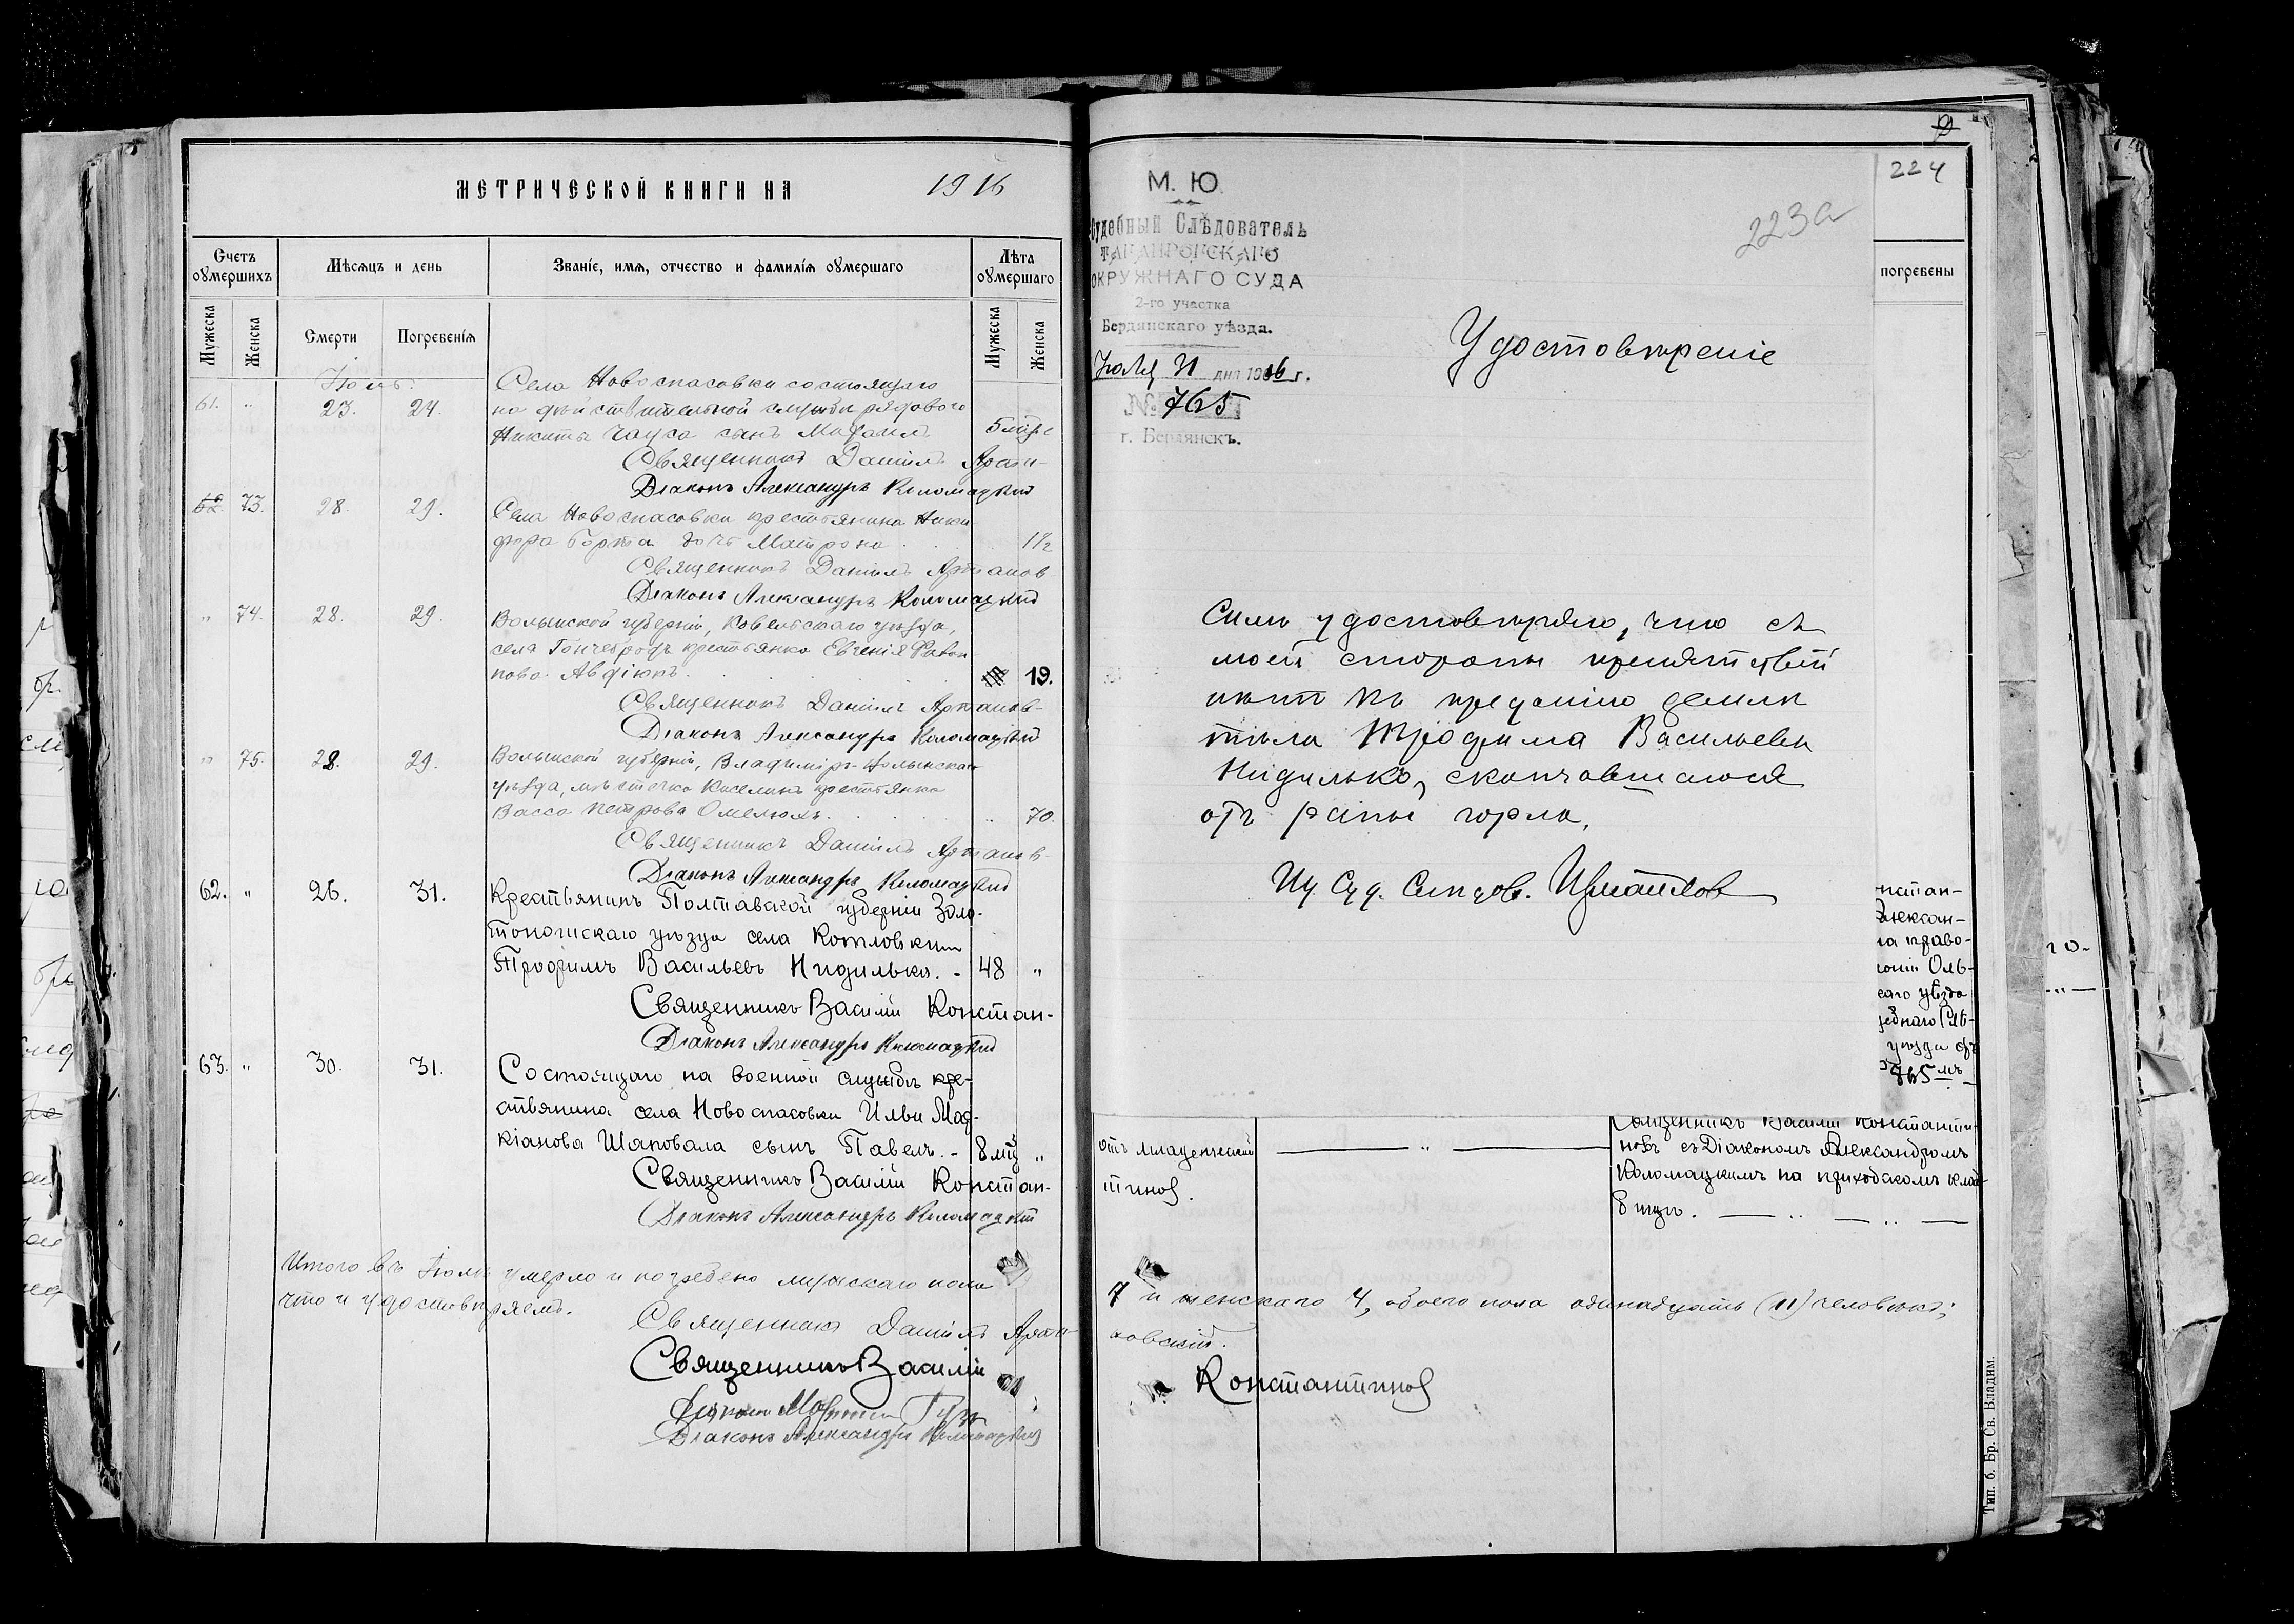 МЕТРИЧЕСКОЙ КНИГИ НА 1916
Счетъ оумершихъ
Мѣсяцъ и день
Званіе, имя, отчество и фамилія оумершаго
Лѣта оумершаго
Мужеска
Женска
Смерти
Погребенія
Мужеска
Женска
Іюль.
Села Новоспасовки состоящаго
61. " 23. 24. на дѣйствительной службѣ рядового
Никиты сынъ 5 мѣс
Священникъ Даніилъ
Діаконъ Александръ Коломацкій
62. 73. 28. 29. Села Новоспасовки крестьянина Ники
фора дочь Матрона 1½
Священникъ Даніилъ
Діаконъ Александръ Коломацкій
" 74. 28. 29. Волынской губерніи, Ковельскаго уѣзда,
села крестьянка Евгенія
нова Авдіюкъ. 19.
Священникъ Даніилъ
Діаконъ Александръ Коломацкій
" 75. 28. 29. Волынской губерніи, Владиміръ-Волынскаго
уѣзда, мѣстечка Киселинъ крестьянка
Васса Петрова Омелюхъ. " 70.
Священникъ Даніилъ
Діаконъ Александръ Коломацкій
62. " 26. 31. Крестьянинъ Полтавской губерніи Золо-
тоношскаго уѣзда села
Трофимъ Васильевъ Нидилько. - 48 "
Священникъ Василій Констан-
Діаконъ Александръ Коломацкій
63. " 30. 31. Состоящаго на военной службѣ кре-
стьянина села Новоспасовки Ильи Мар-
кіанова Шаповала сынъ Павелъ. - 8 мц "
Священникъ Василій Констан-
Діаконъ Александръ Коломацкій
Итого въ Іюлѣ умерло и погребено мужскаго пола
что и удостовѣряемъ.
Священникъ Даніилъ
Священникъ Василій
Діаконъ Александръ Коломацкій
9
224
223а
М. Ю.
Судебный Слѣдователь
ТАГАНРОГСКАГО
ОКРУЖНАГО СУДА
2-го участка
Бердянскаго уѣзда.
Іюля 31 дня 1916 г.
№ 765
г. Бердянскъ.
погребены
Удостовѣреніе
Симъ удостовѣряю, что съ
моей стороны препятствій
нѣтъ къ преданію землѣ
тѣла Трофима Васильева
Нидилько, скончавшагося
отъ раны горла.
И. Суд. Слѣдов.
нстан-
Алексан-
на право-
Оль-
скаго уѣзда
уѣзда
765
Священникъ Василій Константи-
новъ съ Діакономъ Александромъ
Коломацкимъ на приходскомъ клад-
бищѣ.
отъ младенческой
тиновъ.
7 и женскаго 4, обоего пола одинадцать (11) человѣкъ;
ковскій.
Константиновъ
Тип. б. Бр. Св. Владим.